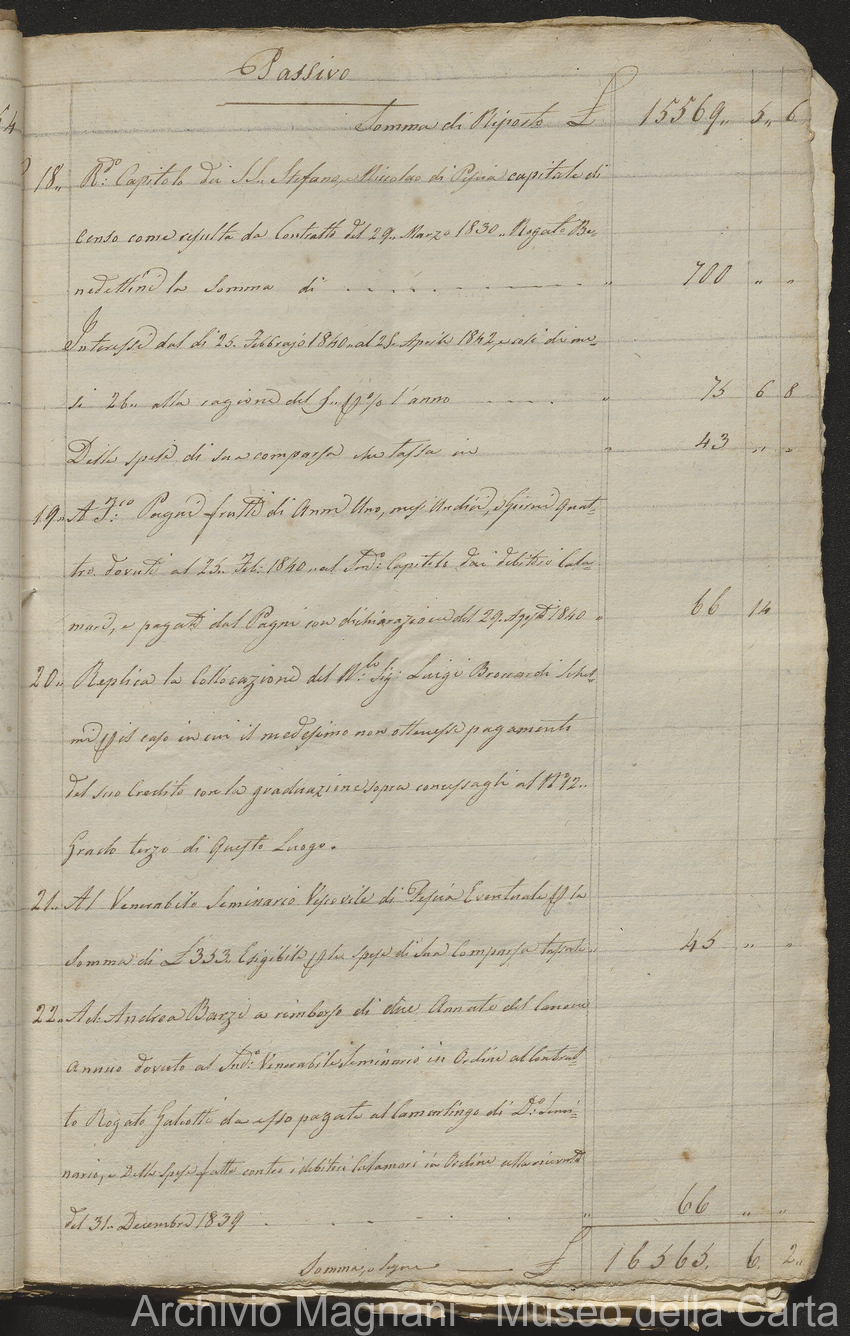 Passivo
Somma di Riporto £ 15569,, 5,, 6
18,, R.do Capitolo dei SS. Stefano, e Niccolao di Pescia capitale di
Censo come resulta da Contratto del 29,, Marzo 1830,, Rogato Be-
nedettini la Somma di ,, 700 ,, ,,
Interessi dal dì 25. Febbrajo 1840,, al 25. Aprile 1842, e così di me-
si 26,, alla ragione del 5,, p% l'anno ,, 75 6 8
Delle spese di sua comparsa che tassa in ,, 43 ,, ,,
19,, A Fr.co Pagni frutti di Anni Uno, mesi Undici, e Giorni Quat-
tro dovuti al 25. Feb: 1840,, al Sud.o Capitolo dai debitori Cala-
mari, e pagati dal Pagni con dichiarazione del 29. Agosto 1840 ,, 66 14
20,, Replica la Collocazione del N.le Sig: Luigi Brovardi Schel-
mi p il caso in cui il medesimo non ottenesse pagamento
del suo Credito con la graduazione sopra concessagli al N°12,,
Grado terzo di Questo Luogo.
21,, Al Venerabile Seminario Vescovile di Pescia Eventuale p la
Somma di £ 353. Esigibile p le spese di sua Comparsa tassate ,, 45 ,, ,,
22,, Ad: Andrea Barzi a rimborso di due Annate del Canone
Annuo dovuto al Sud.o Venerabile Seminario in Ordine al Contrat-
to Rogato Galeotti da esso pagate al Camarlingo di D.o Semi-
nario, e Delle spese fatte contro i debitori Calamari in Ordine alla ricevuta
del 31. Decembre 1839 ,, 66 ,, ,,
Somma, e Segue £ 16565. 6. 2,,
Archivio Magnani - Museo della Carta